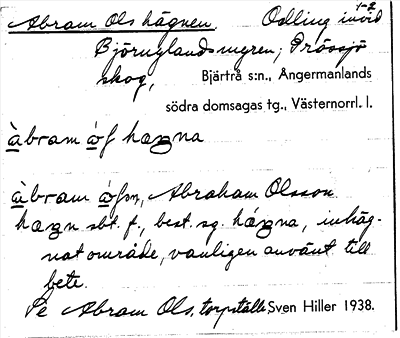 Abram Ols hägnen Odling invid 1-2
Björnylandsmyren; Prässjö
skog, Bjärtrå s:n., Ångermanlands
södra domsagas tg., Västernorrl. l.
àbram òf hægna
àbram òfsɔn, Abraham Olsson.
hægn sbt. f., best. sg. hǽgna, inhäg-
nat område, vanligen använt till
bete.
På Abram Ols, torpställe, Sven Hiller 1938.